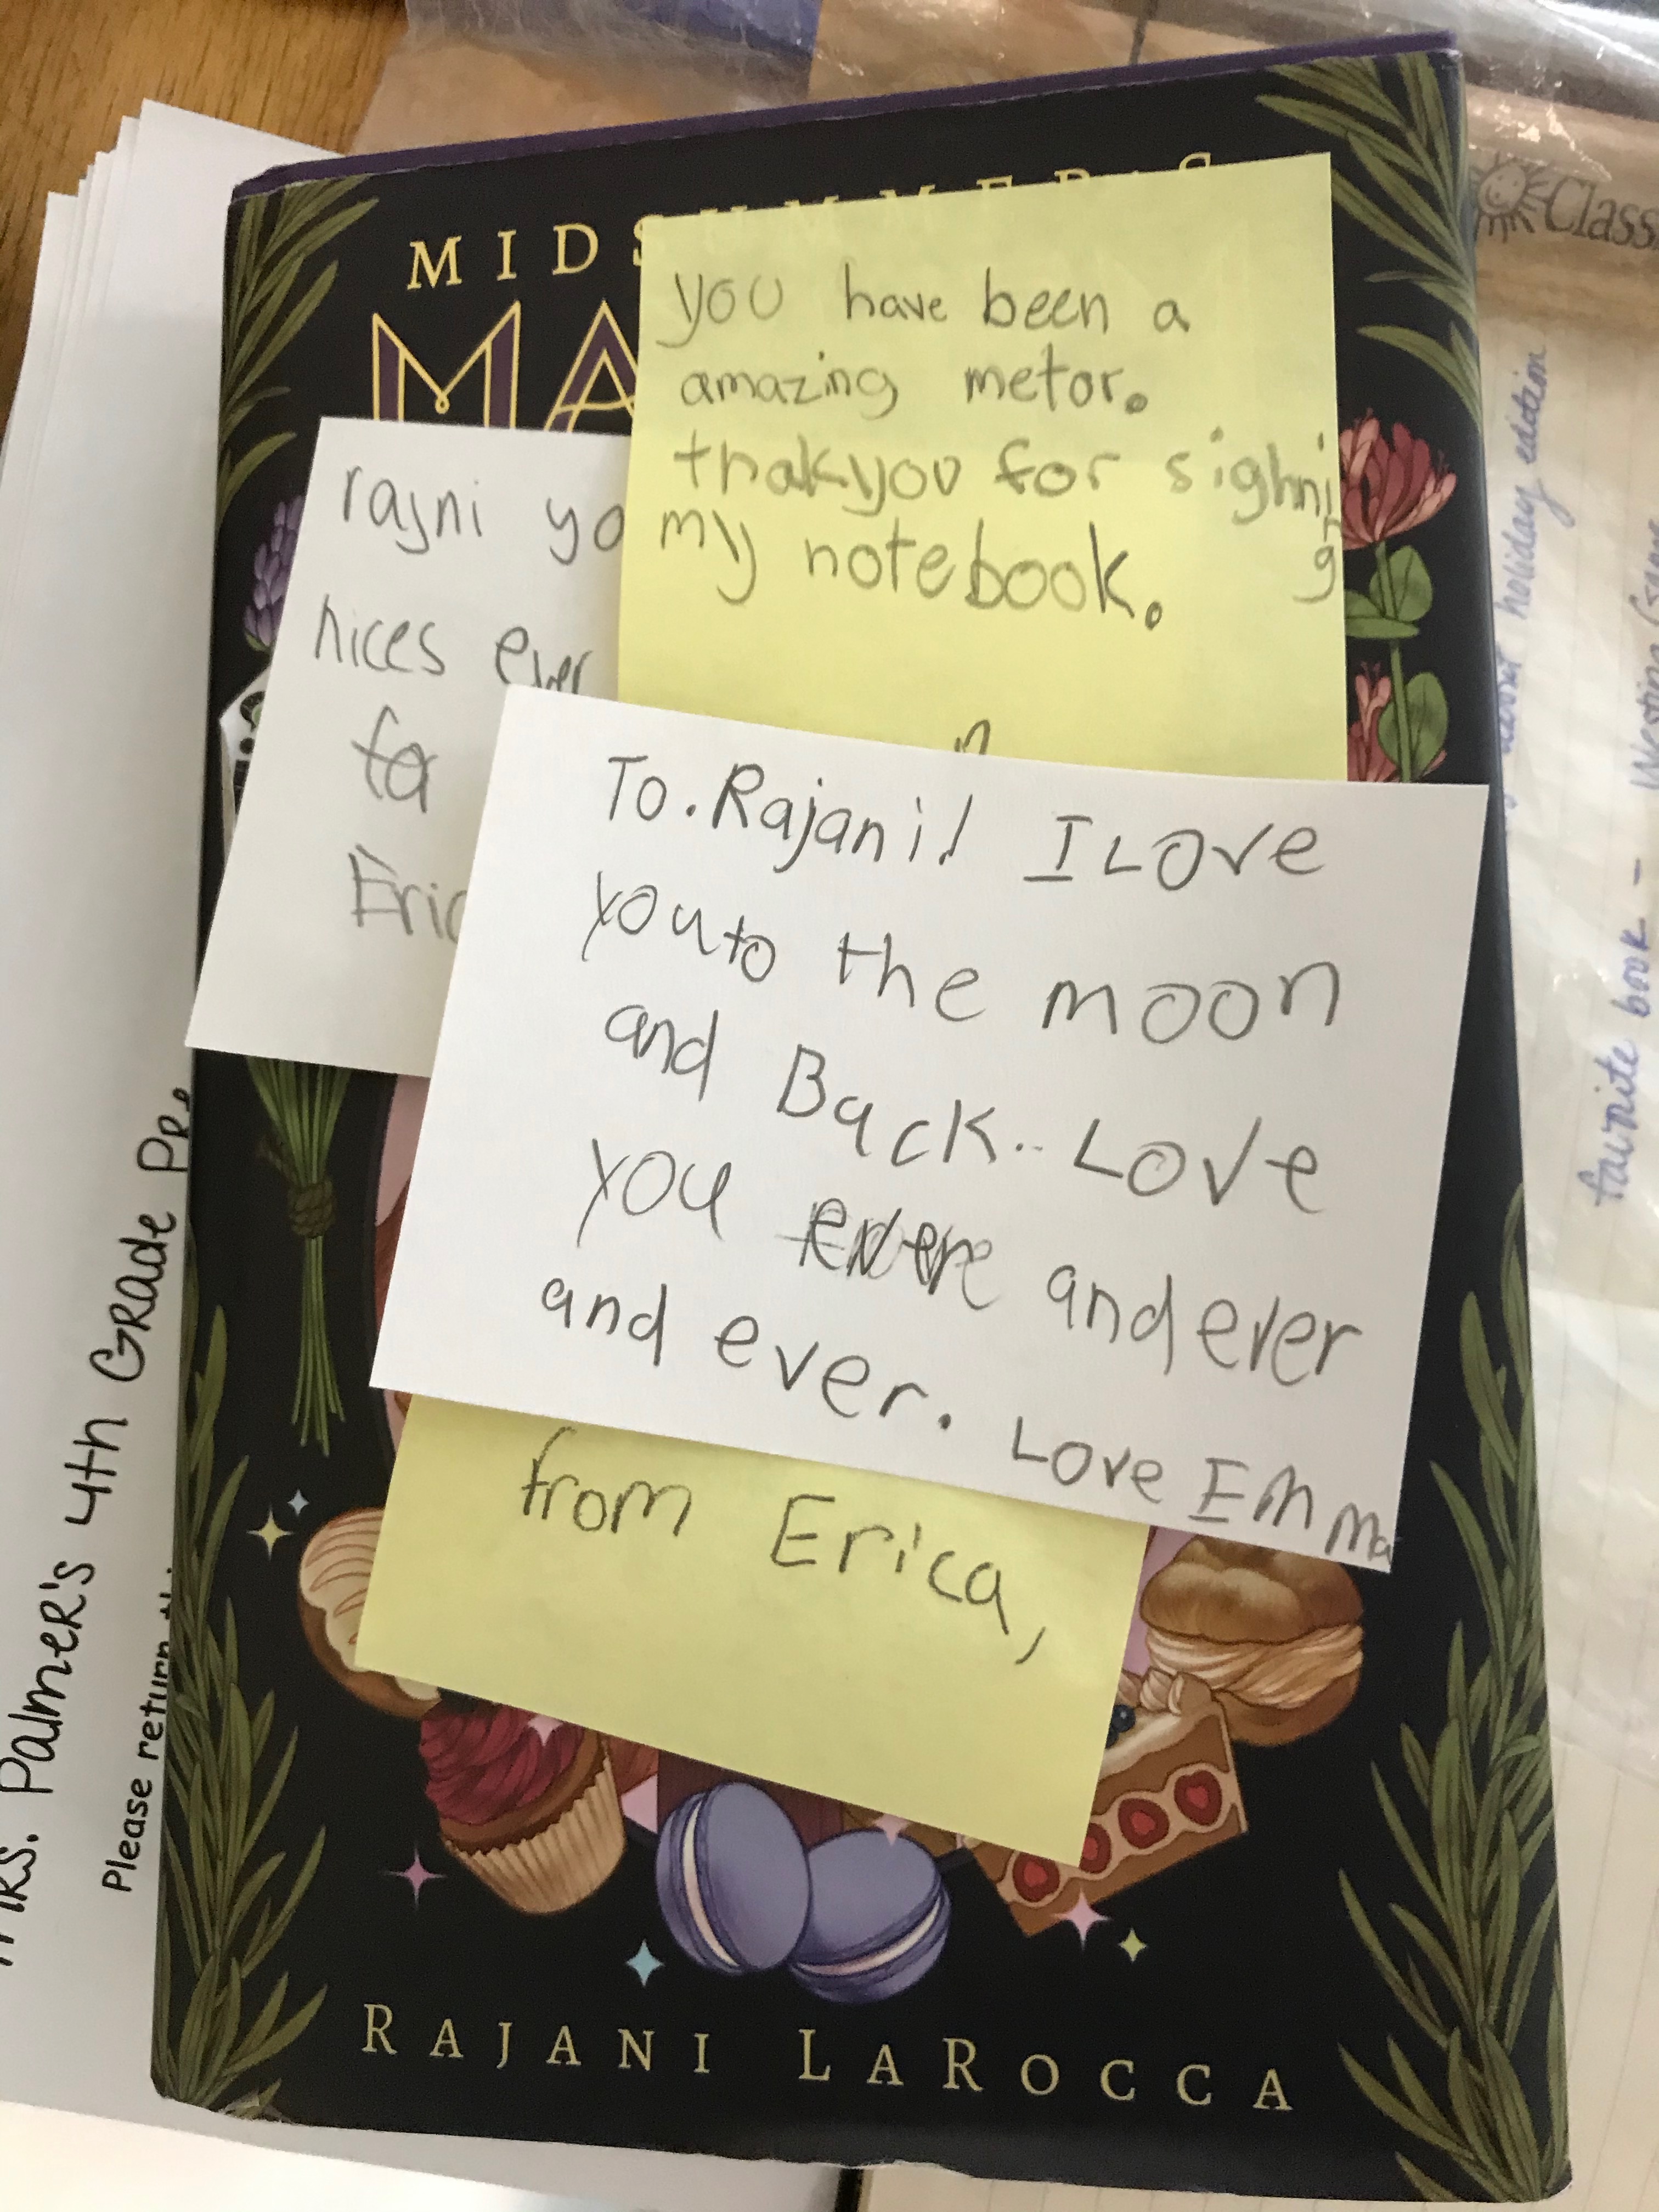 MIDSUMMER'S
MA
you have been a
amazing metor.
thakyou for sighning
my notebook.
rajni yo
nices ever
fo
Eric
To. Rajani! I Love
you to the moon
and Back.. Love
you and ever
and ever. Love Emma
from Erica,
RAJANI LAROCCA
Mrs. Palmer's 4th Grade
Please return
Class
holiday edition
favorite book -